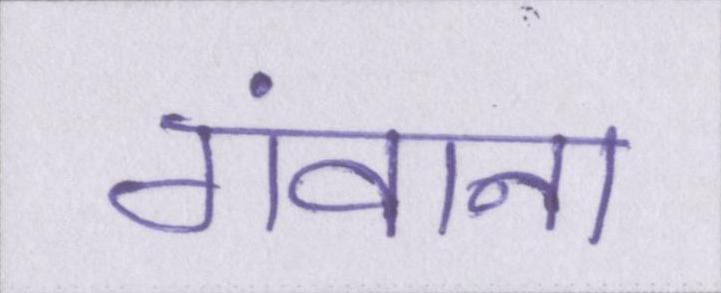 गंवाना